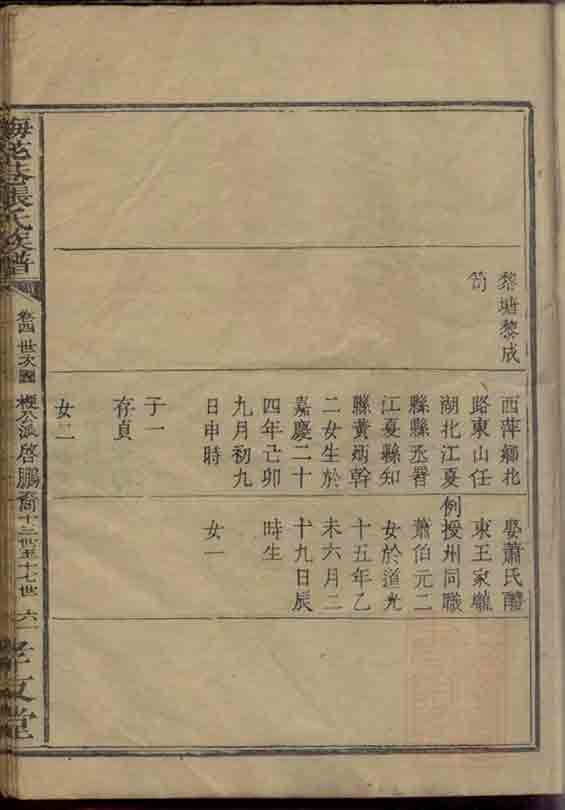 黎塘黎成
筍
西萍鄉北
路東山任
湖北江夏
縣縣丞署
江夏縣知
縣黃炳幹
二女生於
嘉慶二十
四年己卯
九月初九
日申時
子一
存貞
女二
娶蕭氏醴
東王家壠
例授州同職
蕭伯元二
女於道光
十五年乙
未六月二
十九日辰
時生
女一
梅花巷張氏族譜
卷四 世次圖 梗公派啓鵬裔十三世至十七世 六一
孝友堂